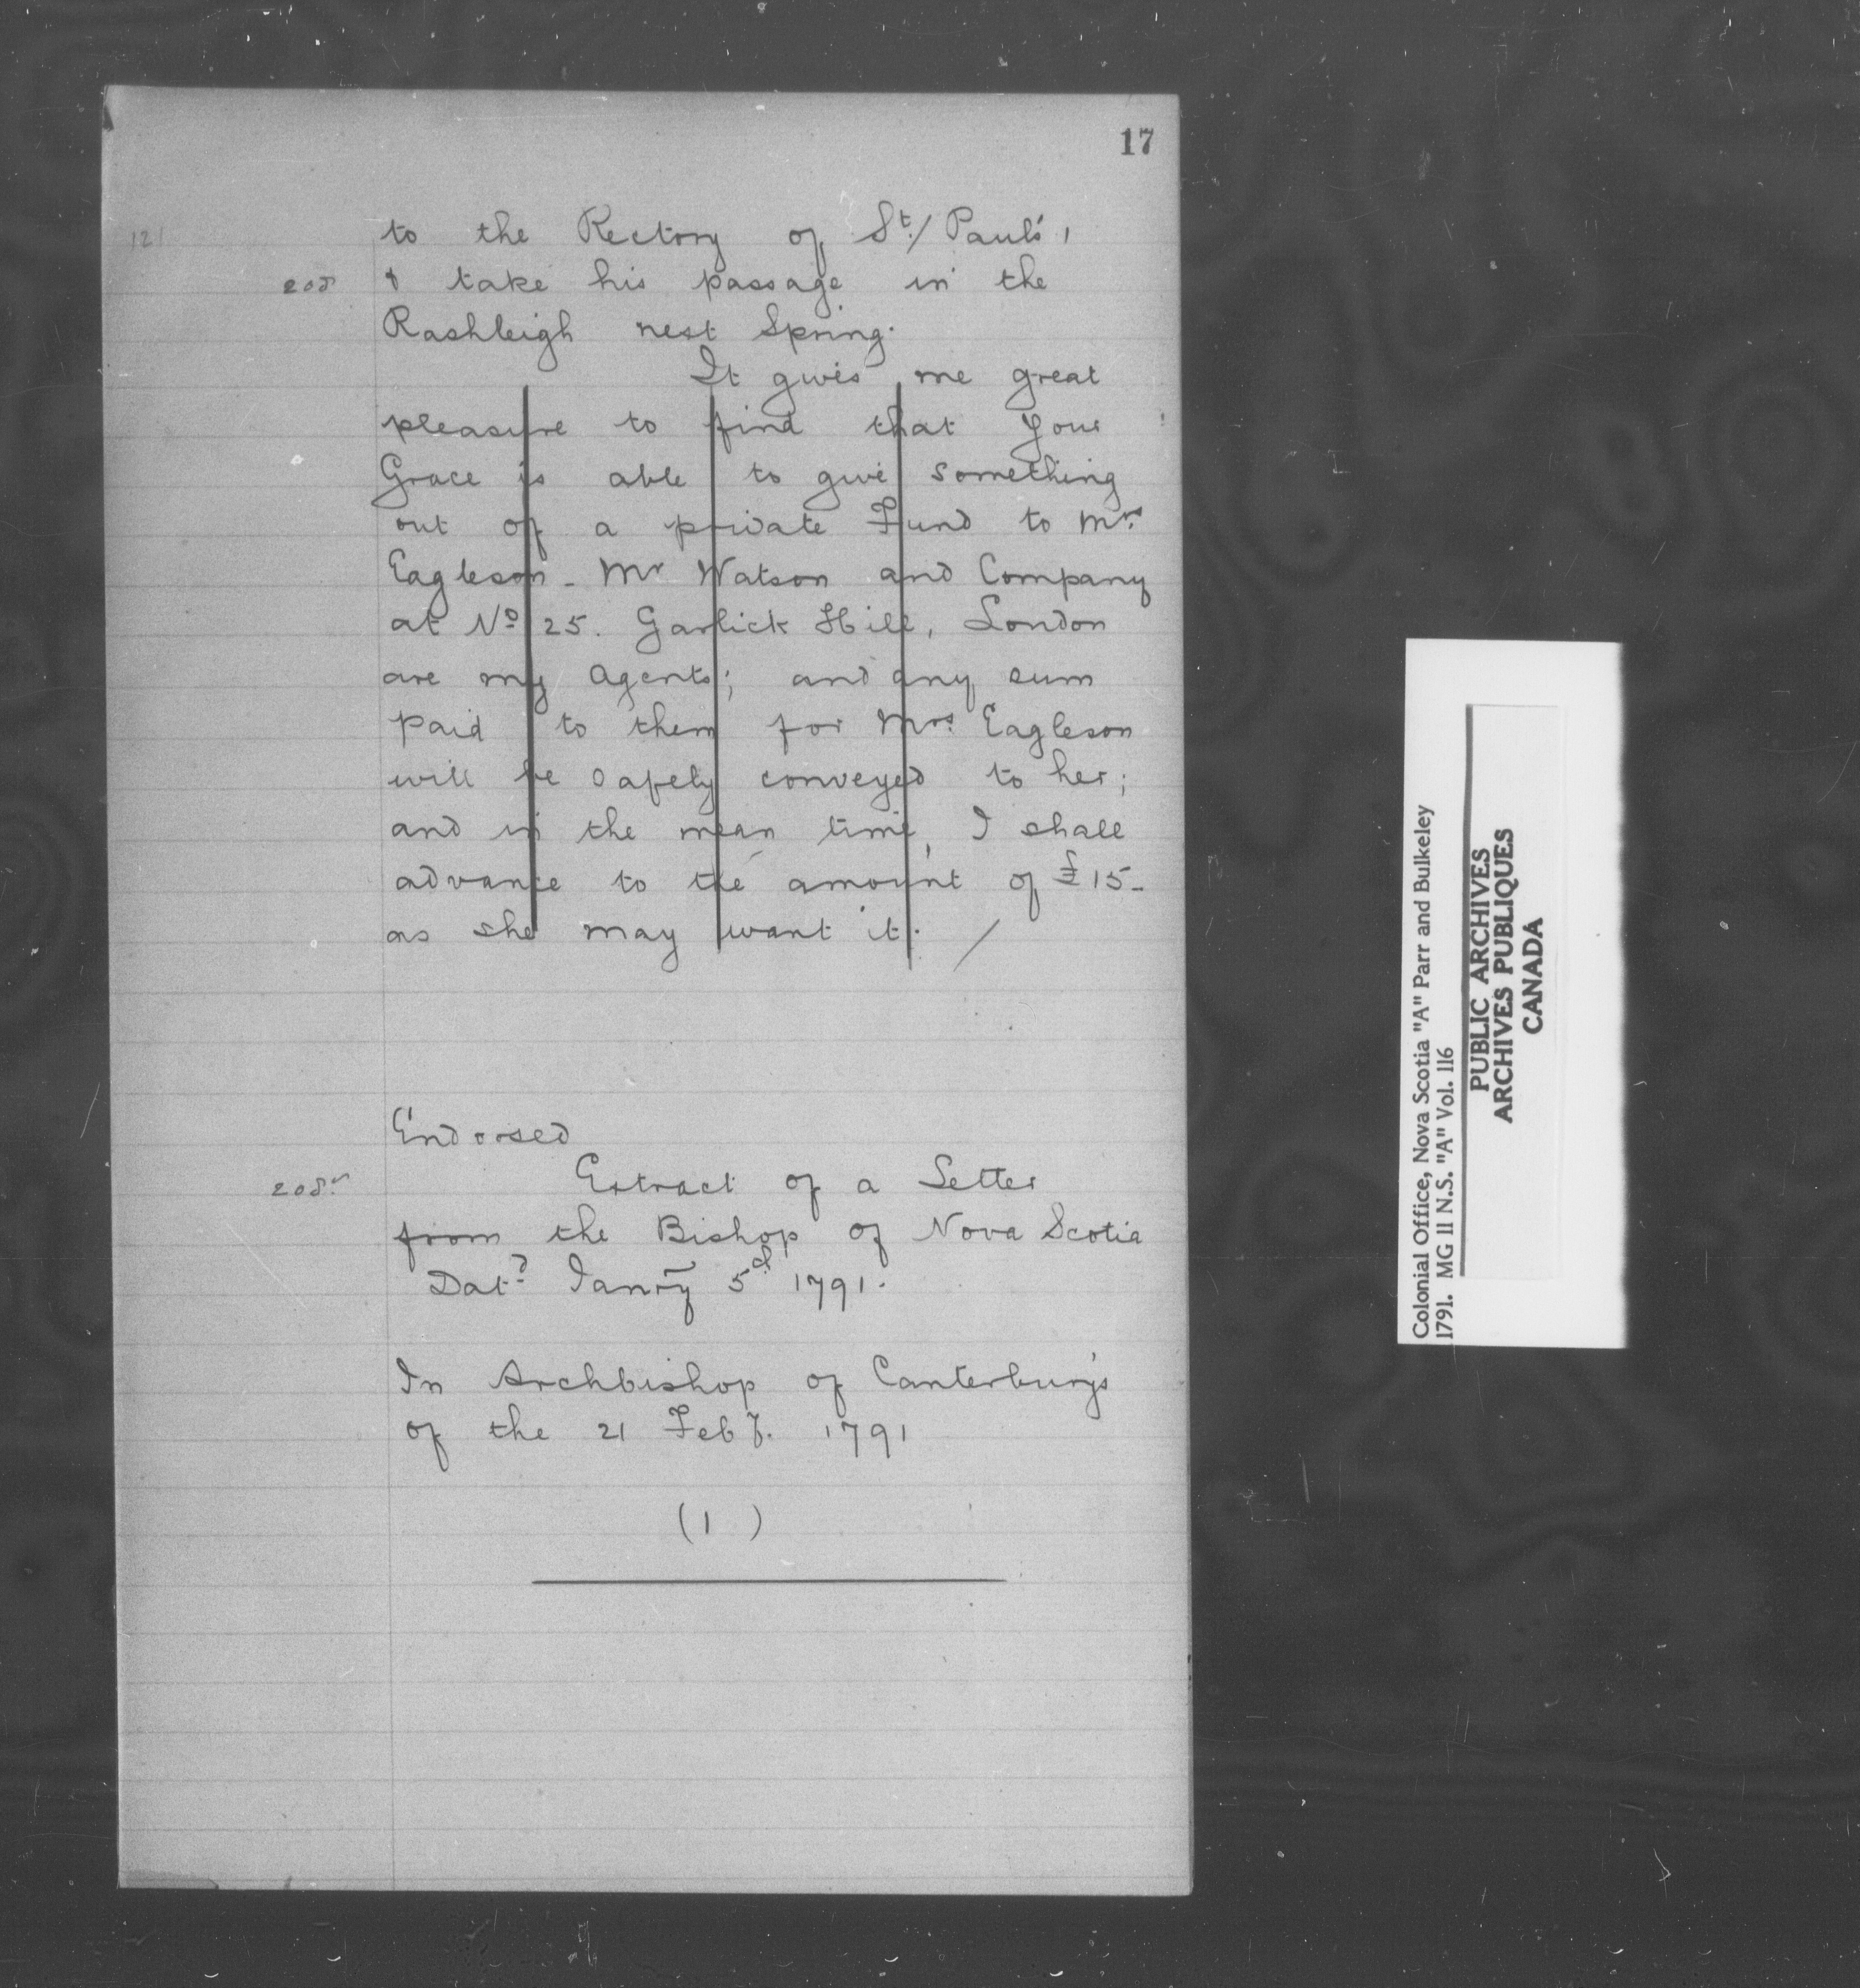 17
121
to the Rectory of St/ Paul's,
208 & take his passage in the
Rashleigh next Spring.
It gives me great
pleasure to find that your
Grace is able to give something
out of a private Fund to Mrs
Eagleson - Mr Watson and Company
at No 25. Garlick Hill, London
are my Agents; and any sum
paid to them for Mrs Eagleson
will be safely conveyed to her;
and in the mean time, I shall
advance to the amount of £15-
as she may want it. /
Endorsed
208v Extract of a Letter
from the Bishop of Nova Scotia
Datd Janry 5th 1791.
In Archbishop of Canterbury's
of the 21 Feby. 1791
(1)
Colonial Office, Nova Scotia "A" Parr and Bulkeley
1791. MG 11 N.S. "A" Vol. 116
PUBLIC ARCHIVES
ARCHIVES PUBLIQUES
CANADA